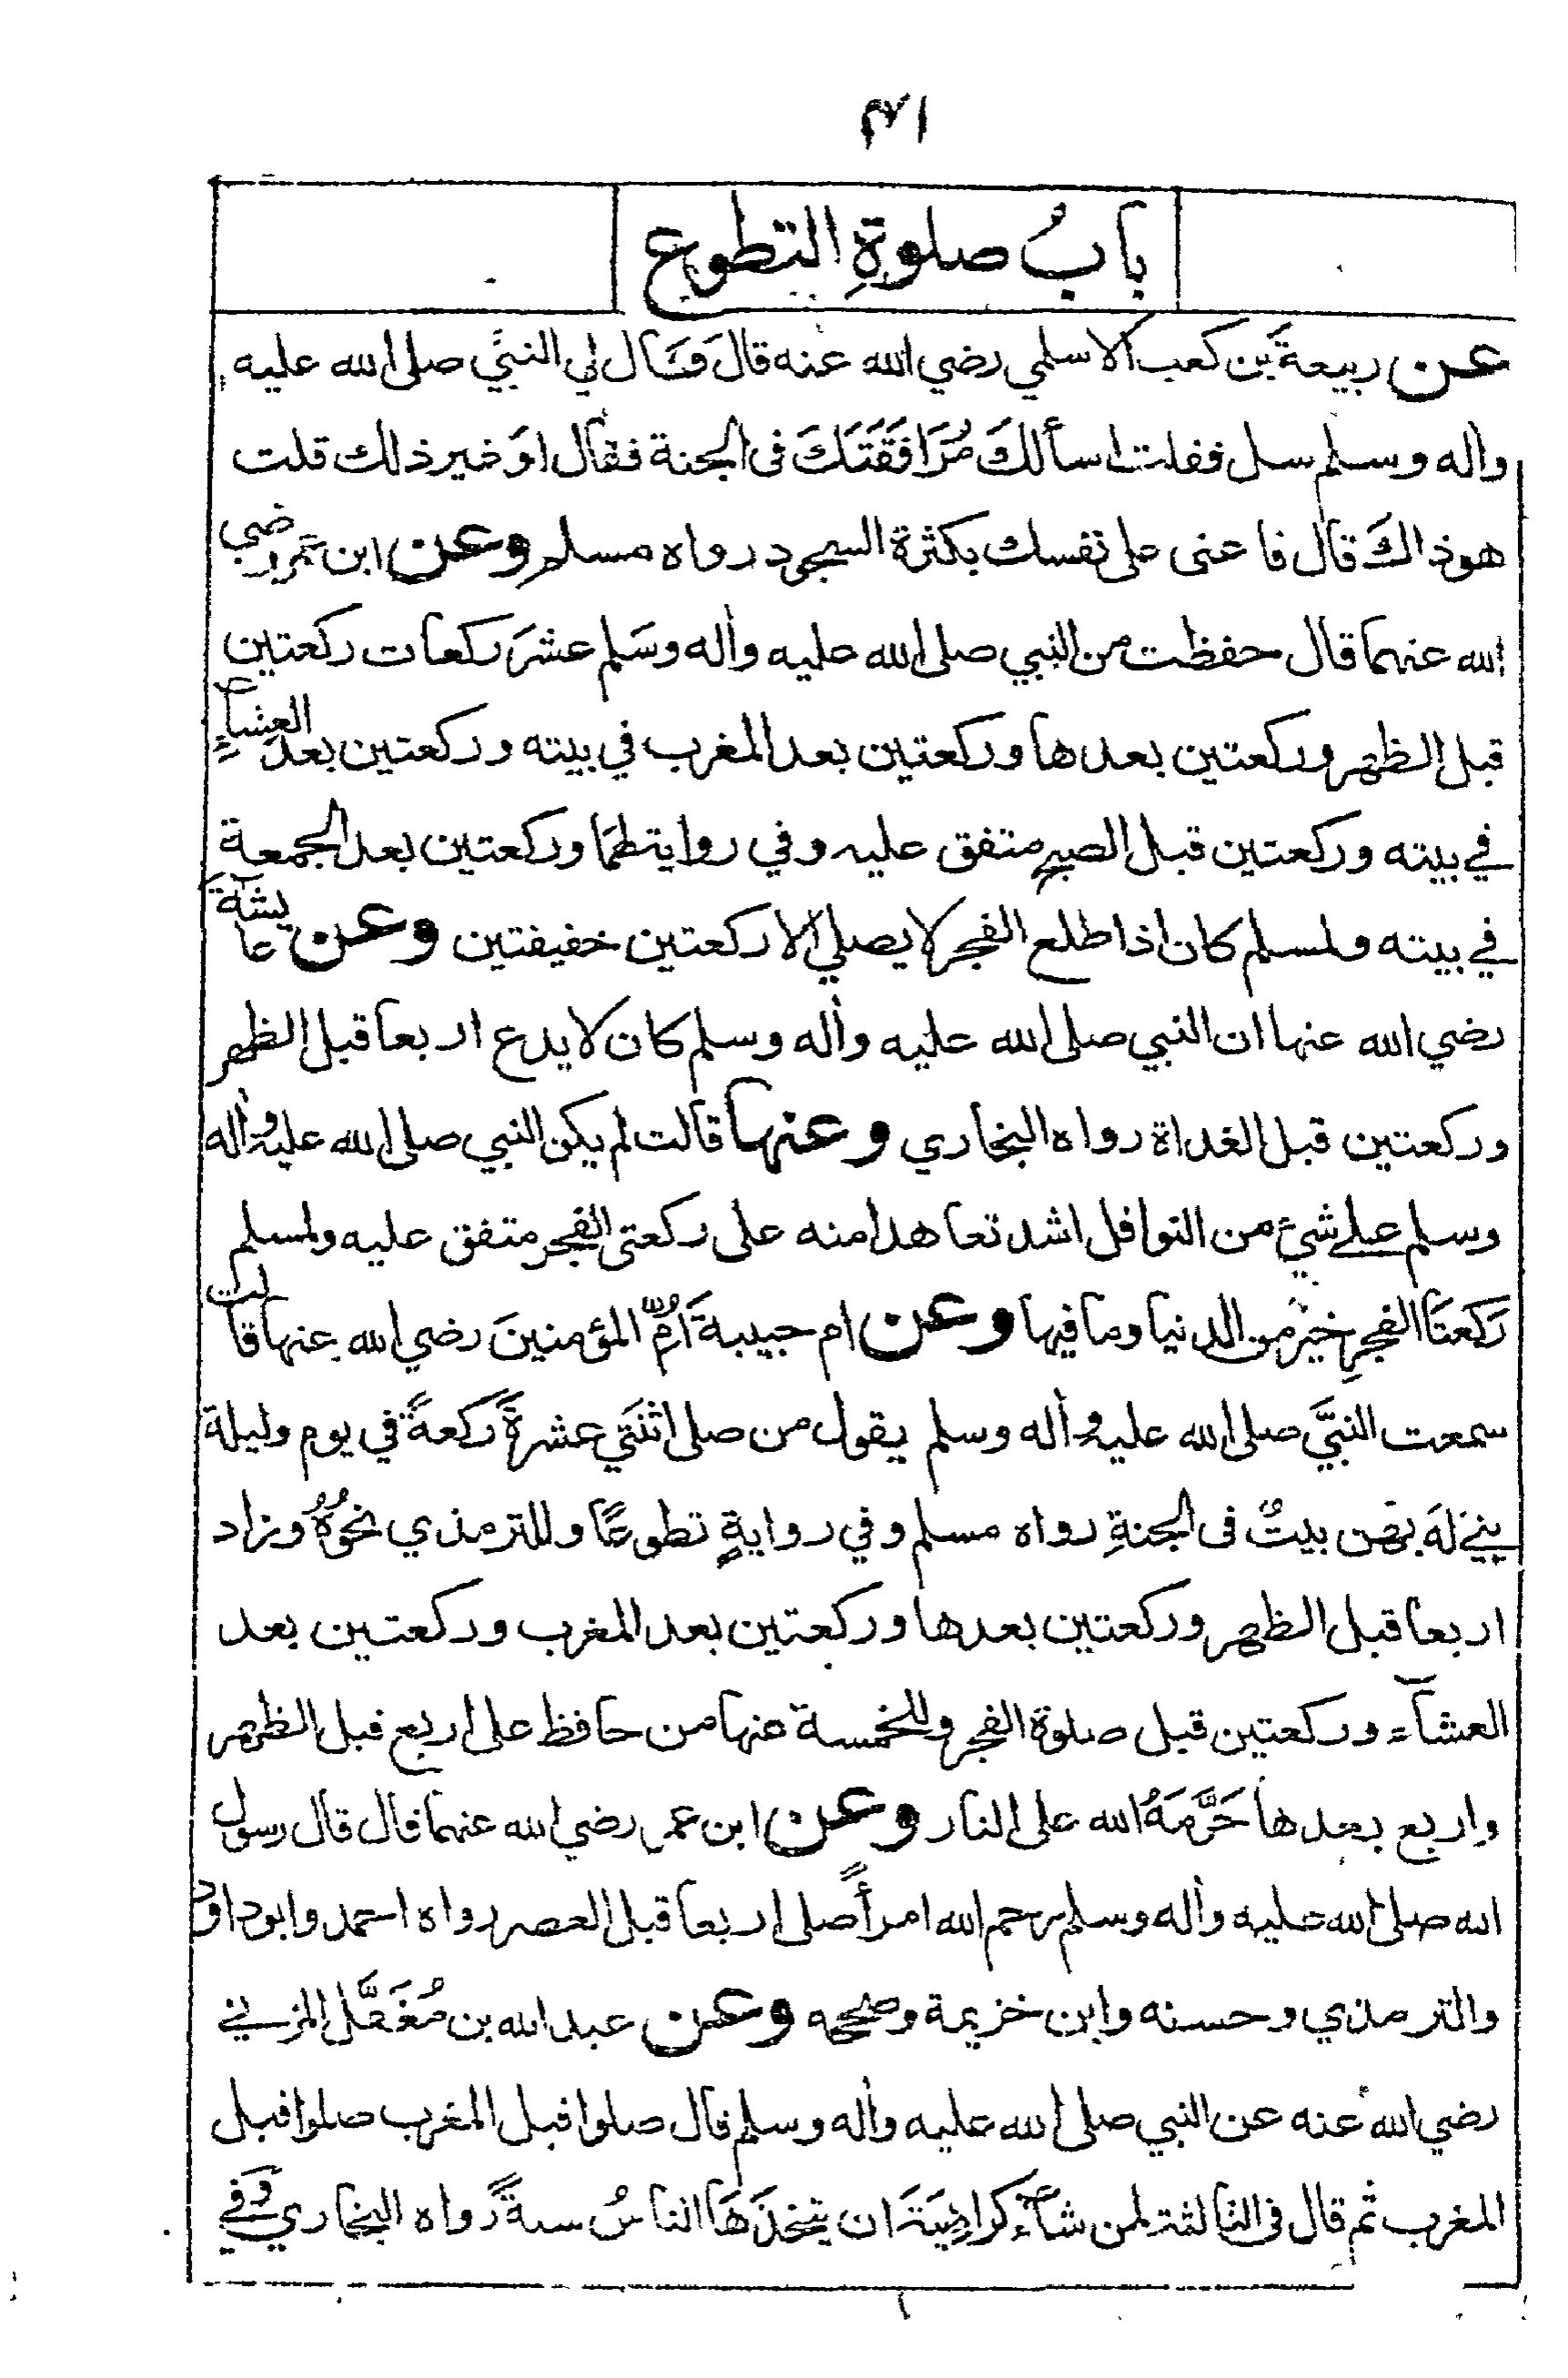 بابُ صلوةِ التطوع
عن ربيعةَ بن كعب الاسلمي رضي الله عنه قالَ قال لي النبيَّ صلى الله عليه
واٰله وسلم سل فقلت اسألكَ مُرَافَقَتَكَ فى الجنة فقال اوَ غير ذالك قلت
هو ذاكَ قال فاعنى على نفسك بكثرة السجود رواه مسلم وعن ابن عمر رضي
الله عنهما قال حفظت من النبي صلى الله عليه واٰله وسَلم عشرَ ركعات ركعتين
قبل الظهر وركعتين بعدها وركعتين بعد المغرب في بيته وركعتين بعدَ العشاءِ
في بيته وركعتين قبل الصبح متفق عليه وفي رواية لهَما وركعتين بعد الجمعة
في بيته ولمسلم كان اذا طلع الفجر لا يصلي الا ركعتين خفيفتين وعن عايشةَ
رضي الله عنها ان النبي صلى الله عليه واٰله وسلم كان لا يدع اربعا قبل الظهر
وركعتين قبل الغداة رواه البخاري وعنها قالت لم يكن النبي صلى الله عليه واٰله
وسلم على شئ من النوافل اشد تعاهدا منه على ركعتى الفجر متفق عليه ولمسلم
رَكعتَا الفجرِ خيرٌ من الدنيا وما فيها وعن ام حبيبةَ اُمِّ المؤمنينَ رضي الله عنها قالت
سمعت النبيَّ صلى الله عليه واٰله وسلم يقول من صلى اثنَتَي عشرةَ ركعةً في يوم وليلة
بني لهَ بهن بيتٌ فى الجنةِ رواه مسلم وفي روايةٍ تطوعًا وللترمذي نحوُهُ وزاد
اربعا قبل الظهر وركعتين بعدها وركعتين بعد المغرب وركعتين بعد
العشآء وركعتين قبل صلوة الفجر وللخمسة عنها من حافظ على اربع قبل الظهر
واربع بعدها حَرَّمَهُ الله على النار وعن ابن عمر رضي الله عنهما قال قال رسول
الله صلى الله عليه واٰله وسلم رحم الله امرأً صلى اربعا قبل العصر رواه احمد وابو داود
والترمذي وحسنه وابن خزيمة وصححه وعن عبد الله بن مُغَفَّل المزني
رضي الله عنه عن النبي صلى الله عليه واٰله وسلم قال صلوا قبل المغرب صلوا قبل
المغرب ثم قال فى الثالثة لمن شآء كراهِيَةَ ان يتخذَهَا الناسُ سنةً رواه البخاري وفي